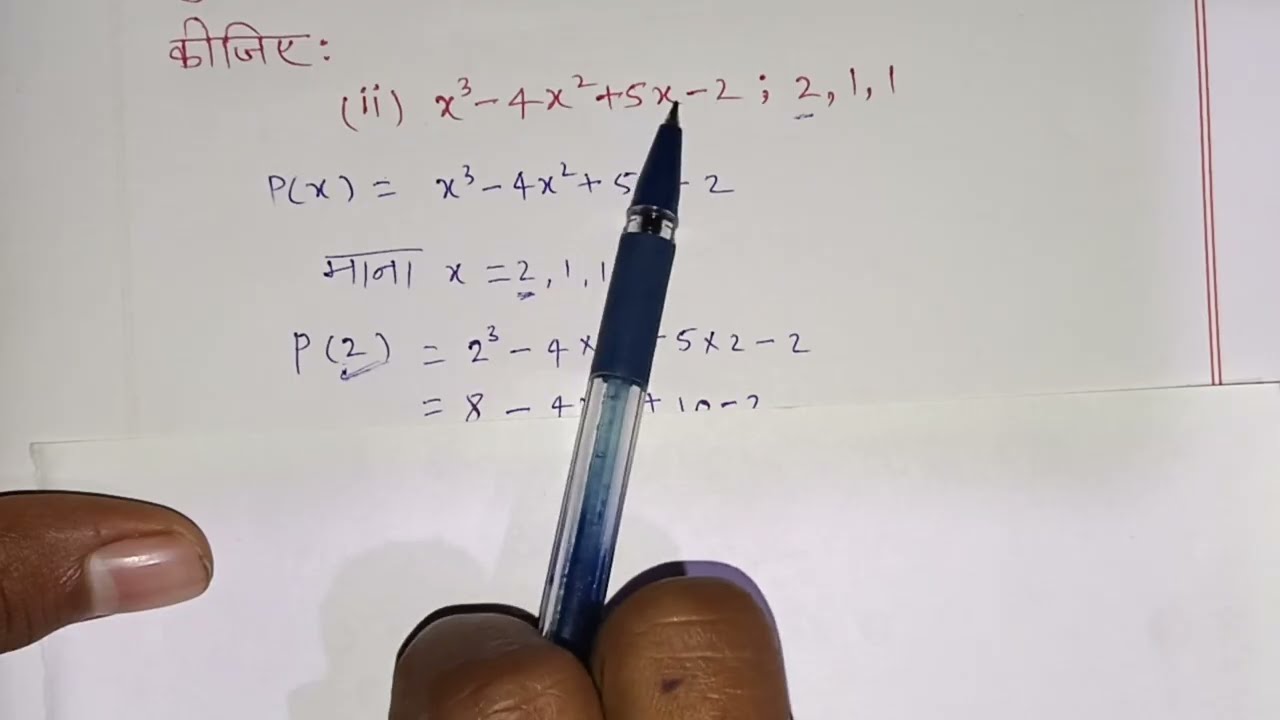 कीजिए:
(ii) x³ - 4x² + 5x - 2 ; 2, 1, 1
P(x) = x³ - 4x² + 5 - 2
माना x = 2, 1, 1
P(2) = 2³ - 4 × 5 × 2 - 2
= 8 - 4 + 10 - 2